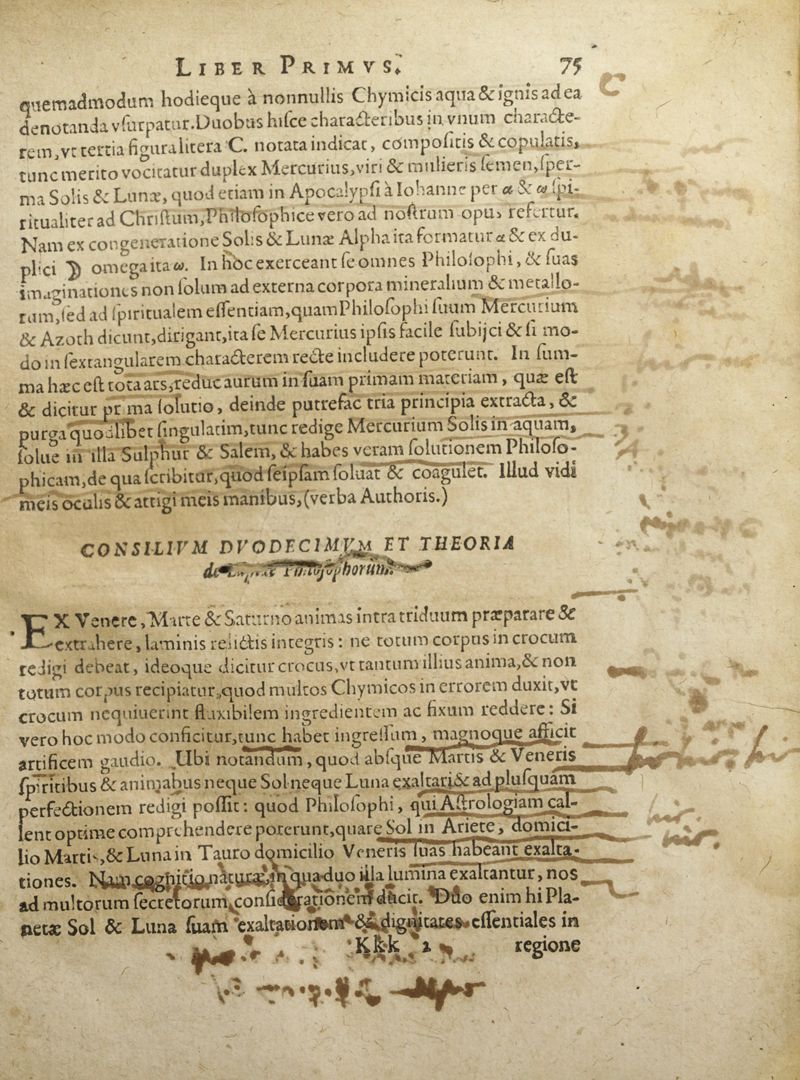 LIBER PRIMVS. 75
quemadmodum hodieque à nonnullis Chymicis aqua & ignis ad ea
denotanda vſurpatur. Duobus hiſce characteribus in vnum characte-
rem, vt tertia figura litera C. notata indicat, compoſitis & copulatis,
tunc merito vocitatur duplex Mercurius, viri & mulieris ſemen, ſper-
ma Solis & Lunæ, quod etiam in Apocalypſi à Iohanne per α & ω ſpi-
ritualiter ad Chriſtum, Philoſophice vero ad noſtrum opus refertur.
Nam ex congeneratione Solis & Lunæ Alpha ita formatur α & ex du-
plici ☽ omega ita ω. In hoc exerceant ſe omnes Philoſophi, & ſuas
imaginationes non ſolum ad externa corpora mineralium & metallo-
rum, ſed ad ſpiritualem eſſentiam, quam Philoſophi ſuum Mercurium
& Azoth dicunt, dirigant, ita ſe Mercurius ipſis facile ſubijci & ſi mo-
do in ſextangularem characterem recte includere poterunt. In ſum-
ma hæc eſt tota ars, reduc aurum in ſuam primam materiam, quæ eſt
& dicitur prima ſolutio, deinde putrefac tria principia extracta, &
purga quodlibet ſingulatim, tunc redige Mercurium Solis in aquam,
ſolue in illa Sulphur & Salem, & habes veram ſolutionem Philoſo-
phicam, de qua ſcribitur, quod ſeipſam ſoluat & coagulet. Illud vidi
meis oculis & attigi meis manibus, (verba Authoris.)
CONSILIVM DVODECIMVM ET THEORIA
de Philoſophorum.
EX Venere, Marte & Saturno animas intra triduum præparare &
extrahere, laminis relictis integris: ne totum corpus in crocum
redigi debeat, ideoque dicitur crocus, vt tantum illius anima, & non
totum corpus recipiatur, quod multos Chymicos in errorem duxit, vt
crocum nequiuerint fluxibilem ingredientem ac fixum reddere: Si
vero hoc modo conficitur, tunc habet ingreſſum, magnoque afficit
artificem gaudio. Ubi notandum, quod abſque Martis & Veneris
ſpiritibus & animabus neque Sol neque Luna exaltari & ad pluſquam
perfectionem redigi poſſit: quod Philoſophi, qui Aſtrologiam cal-
lent optime comprehendere poterunt, quare Sol in Ariete, domici-
lio Martis, & Luna in Tauro domicilio Veneris ſuas habeant exalta-
tiones. Nam cognitio naturæ, in qua duo illa lumina exaltantur, nos
ad multorum ſecretorum conſiderationem ducit. Duo enim hi Pla-
netæ Sol & Luna ſuam exaltationem & dignitates eſſentiales in
Kkk 2 regione